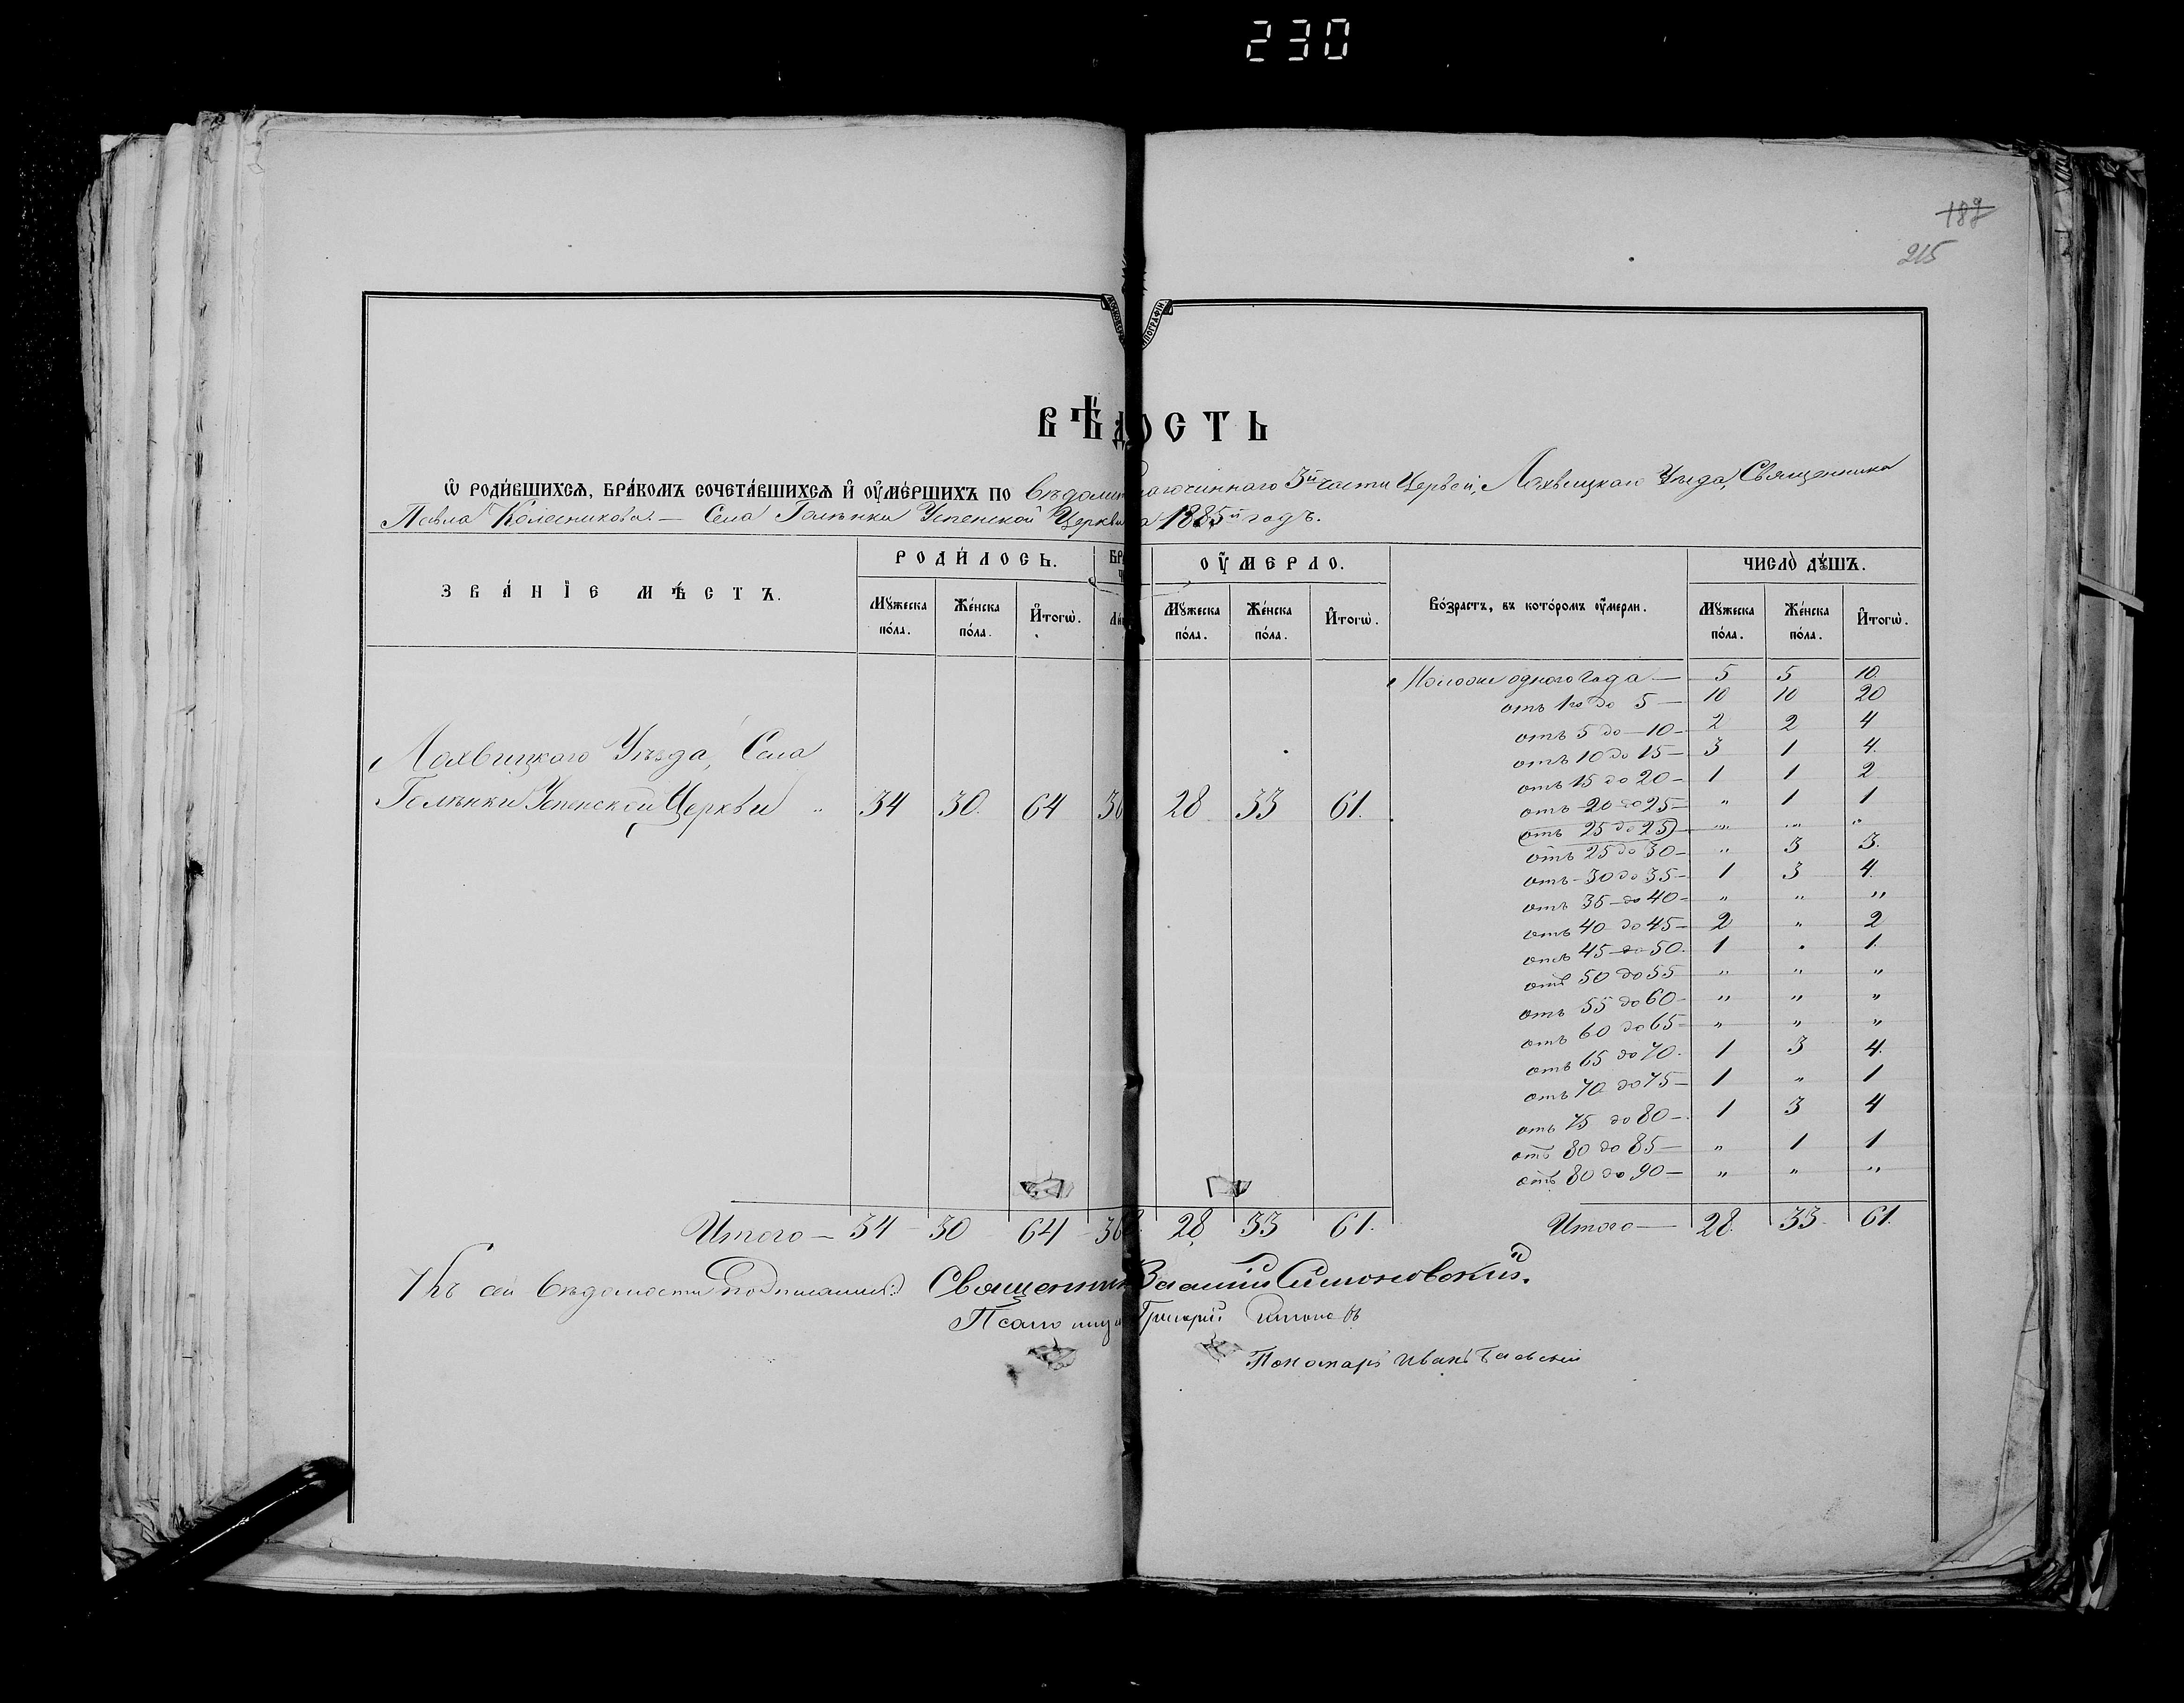 230
189
215
ВѢДОСТЬ
Ѡ РОДИ́ВШИХСѦ, БРА́КОМЪ СОЧЕТА́ВШИХСѦ И҆ ОУ҆МЕ́РШИХЪ ПО Вѣдом гочиннаго 3й части Церквей, Лохвицкаго Уѣзда, Священника
Павла Колесникова. — Села Голѣнки Успенской Церкви 1885й годъ.
ЗВА́НІЕ МѢ́СТЪ.
РОДИ́ЛОСЬ.
ОУ҆́МЕРЛО.
ЧИСЛО̀ ДꙊ́ШЪ.
Мꙋ́жеска по́ла. Же́нска по́ла. И҆тогѡ̀.
Мꙋ́жеска по́ла. Же́нска по́ла. И҆тогѡ̀.
Во́зрастъ, въ кото́ромъ ᲂу҆́мерли.
Мꙋ́жеска по́ла. Же́нска по́ла. И҆тогѡ̀.
Лохвицкаго Уѣзда, Села
Голѣнки Успенской Церкви „ 34 30. 64 28 33 61.
Моложе одного года — 5 5 10.
отъ 1го до 5 — 10 10 20
отъ 5 до — 10 — 2 2 4
отъ 10 до 15 — 3 1 4.
отъ 15 до 20 — 1 1 2
отъ 20 до 25 — „ 1 1
(отъ 25 до 25) — „ „ „
отъ 25 до 30 — „ 3 3.
отъ — 30 до 35 — 1 3 4.
отъ 35 — до 40 — „ „ „
отъ 40 до 45 — 2 „ 2
отъ 45 — до — 50. 1 „ 1.
отъ 50 до 55 „ „ „
отъ 55 до 60 — „ „ „
отъ 60 до 65 — „ „ „
отъ 65 до 70. 1 3 4.
отъ 70 до 75 — 1 „ 1
отъ 75 до 80 — 1 3 4
отъ 80 до 85 — „ 1 1
отъ 80 до 90 — „ „ „
Итого — 34 — 30 64 28 33 61.
Итого — 28. 33. 61.
Къ сей Вѣдомости подписались: Священник Симоновскій.
Григорій
Пономарь Иванъ